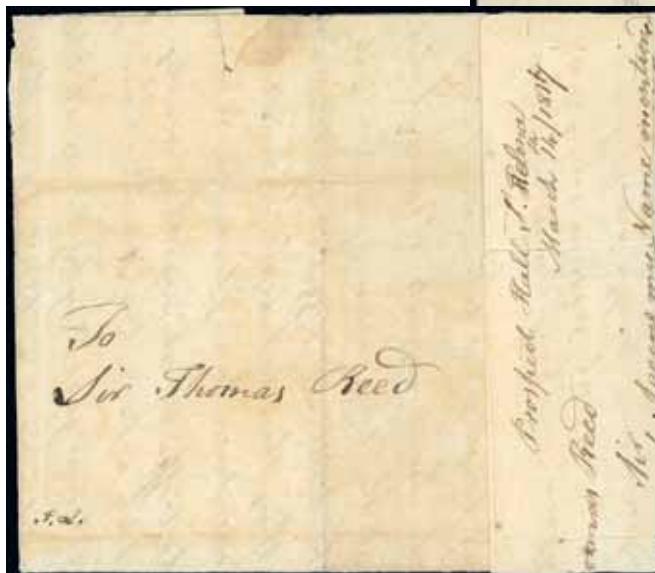 To
Sir Thomas Reed
Prospect Hall St. Helena
March 14th/1817
Thomas Reed
Sir
Name mention